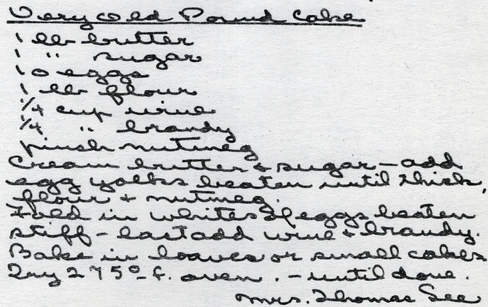 Very Old Pound Cake
1 lb butter
1 " sugar
10 eggs
1 lb flour
1/4 cup wine
1/4 " brandy
pinch nutmeg
Cream butter & sugar – add
egg yolks beaten until thick,
flour & nutmeg.
Fold in whites of eggs beaten
stiff – last add wine & brandy.
Bake in loaves or small cakes
275° f. oven. – until done.
Mrs. Thomas Lee